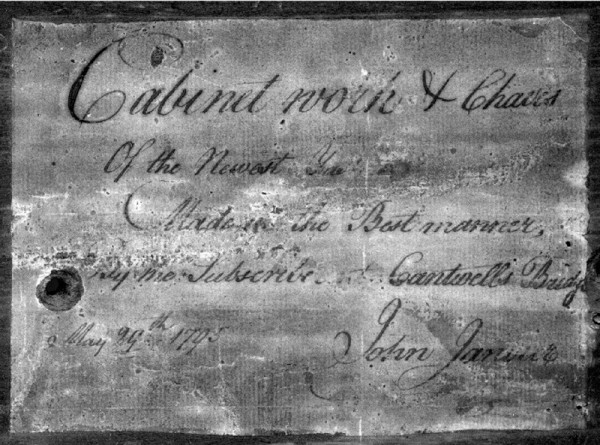 Cabinet work & Chaires
Of the Newest
Made in the Best manner,
By me Subscribe Cantwells Bridge
May 29th 1795
John Janvier